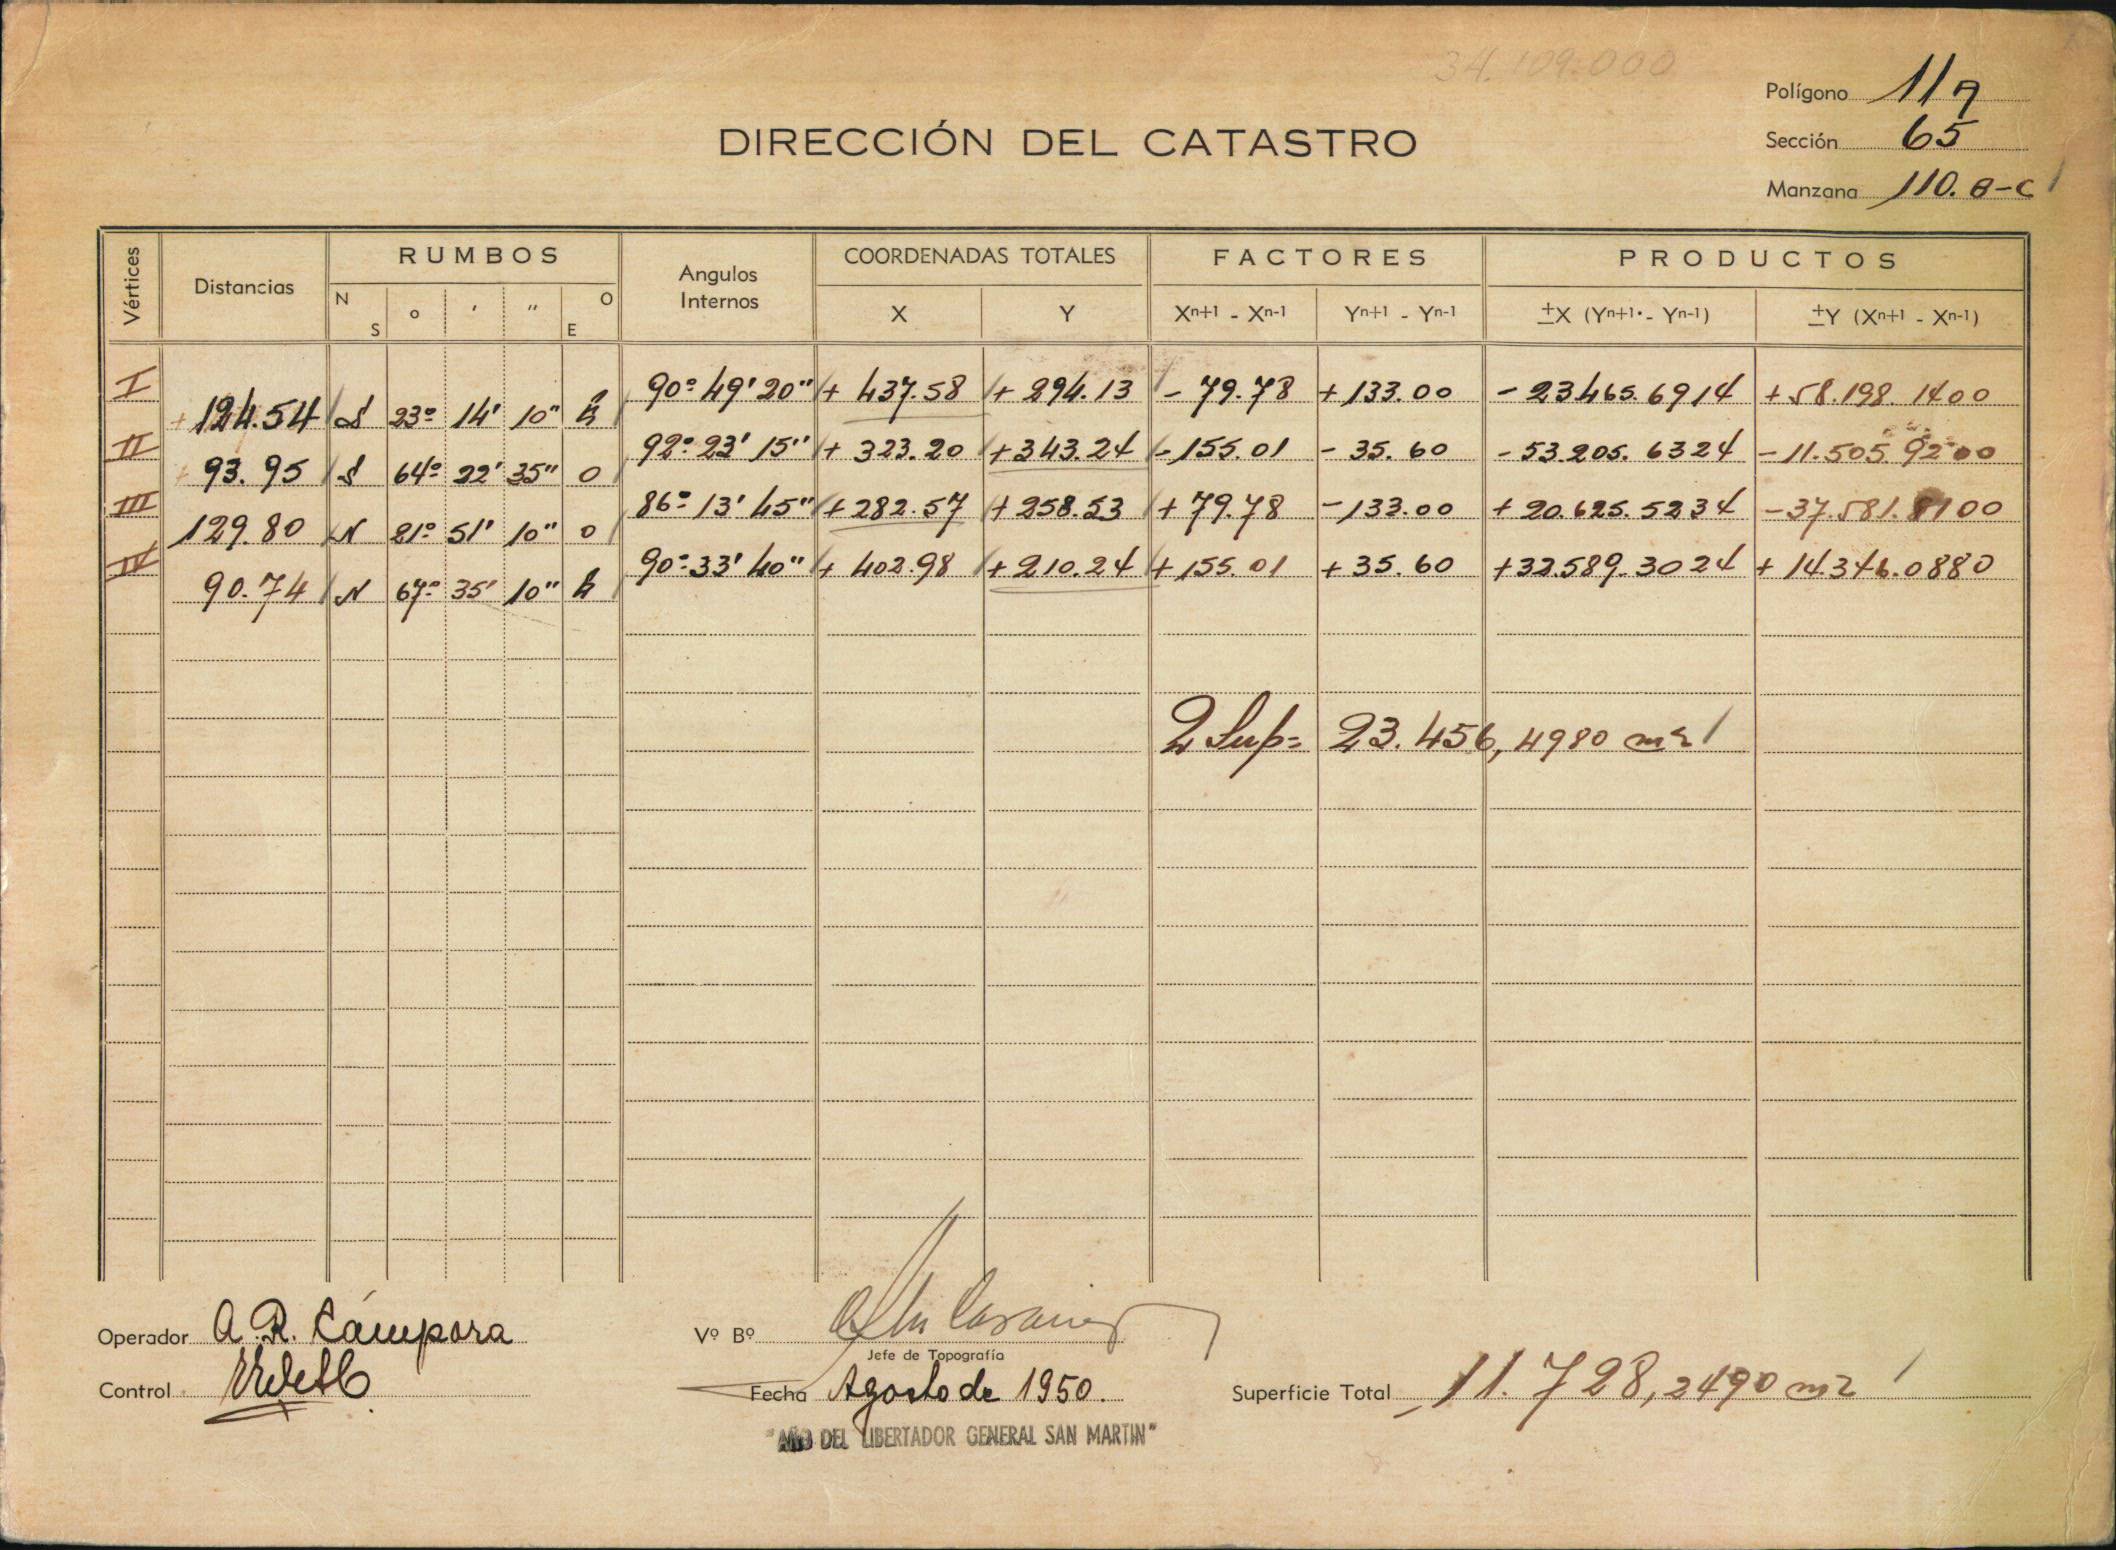 34.109.000
Polígono 11A
DIRECCIÓN DEL CATASTRO
Sección 65
Manzana 110. B-C
Vértices Distancias RUMBOS Angulos Internos COORDENADAS TOTALES FACTORES PRODUCTOS
N S ° ' " O E X Y Xn+1 - Xn-1 Yn+1 - Yn-1 ±X (Yn+1 - Yn-1) ±Y (Xn+1 - Xn-1)
I 90° 49' 20" + 437.58 + 294.13 - 79.78 + 133.00 - 23465.6914 + 58.198.1400
+ 124.54 S 23° 14' 10" E
II 92° 23' 15" + 323.20 + 343.24 - 155.01 - 35.60 - 53.205.6324 - 11.505.9200
93.95 S 64° 22' 35" O
III 86° 13' 45" + 282.57 + 258.53 + 79.78 - 133.00 + 20.625.5234 - 37.581.8100
129.80 N 21° 51' 10" O
IV 90° 33' 40" + 402.98 + 210.24 + 155.01 + 35.60 + 32.589.3024 + 14.346.0880
90.74 N 67° 35' 10" E
2 Sup= 23.456,4980 m2
Operador A. R. Cámpora Vº Bº
Jefe de Topografía
Control Fecha Agosto de 1950. Superficie Total 11.728,2490 m2
"AÑO DEL LIBERTADOR GENERAL SAN MARTIN"